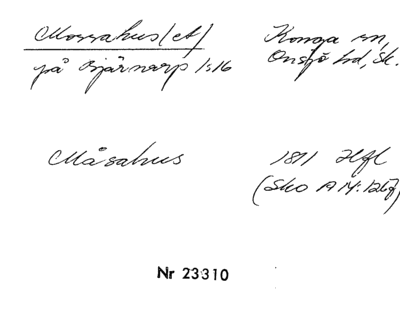 Mossahus(et) Konga sn,
på Bjärnarp 1:16 Onsjö hd, Sk.
Måsahus 1811 Hfl
(Sko AM:126)
Nr 23310